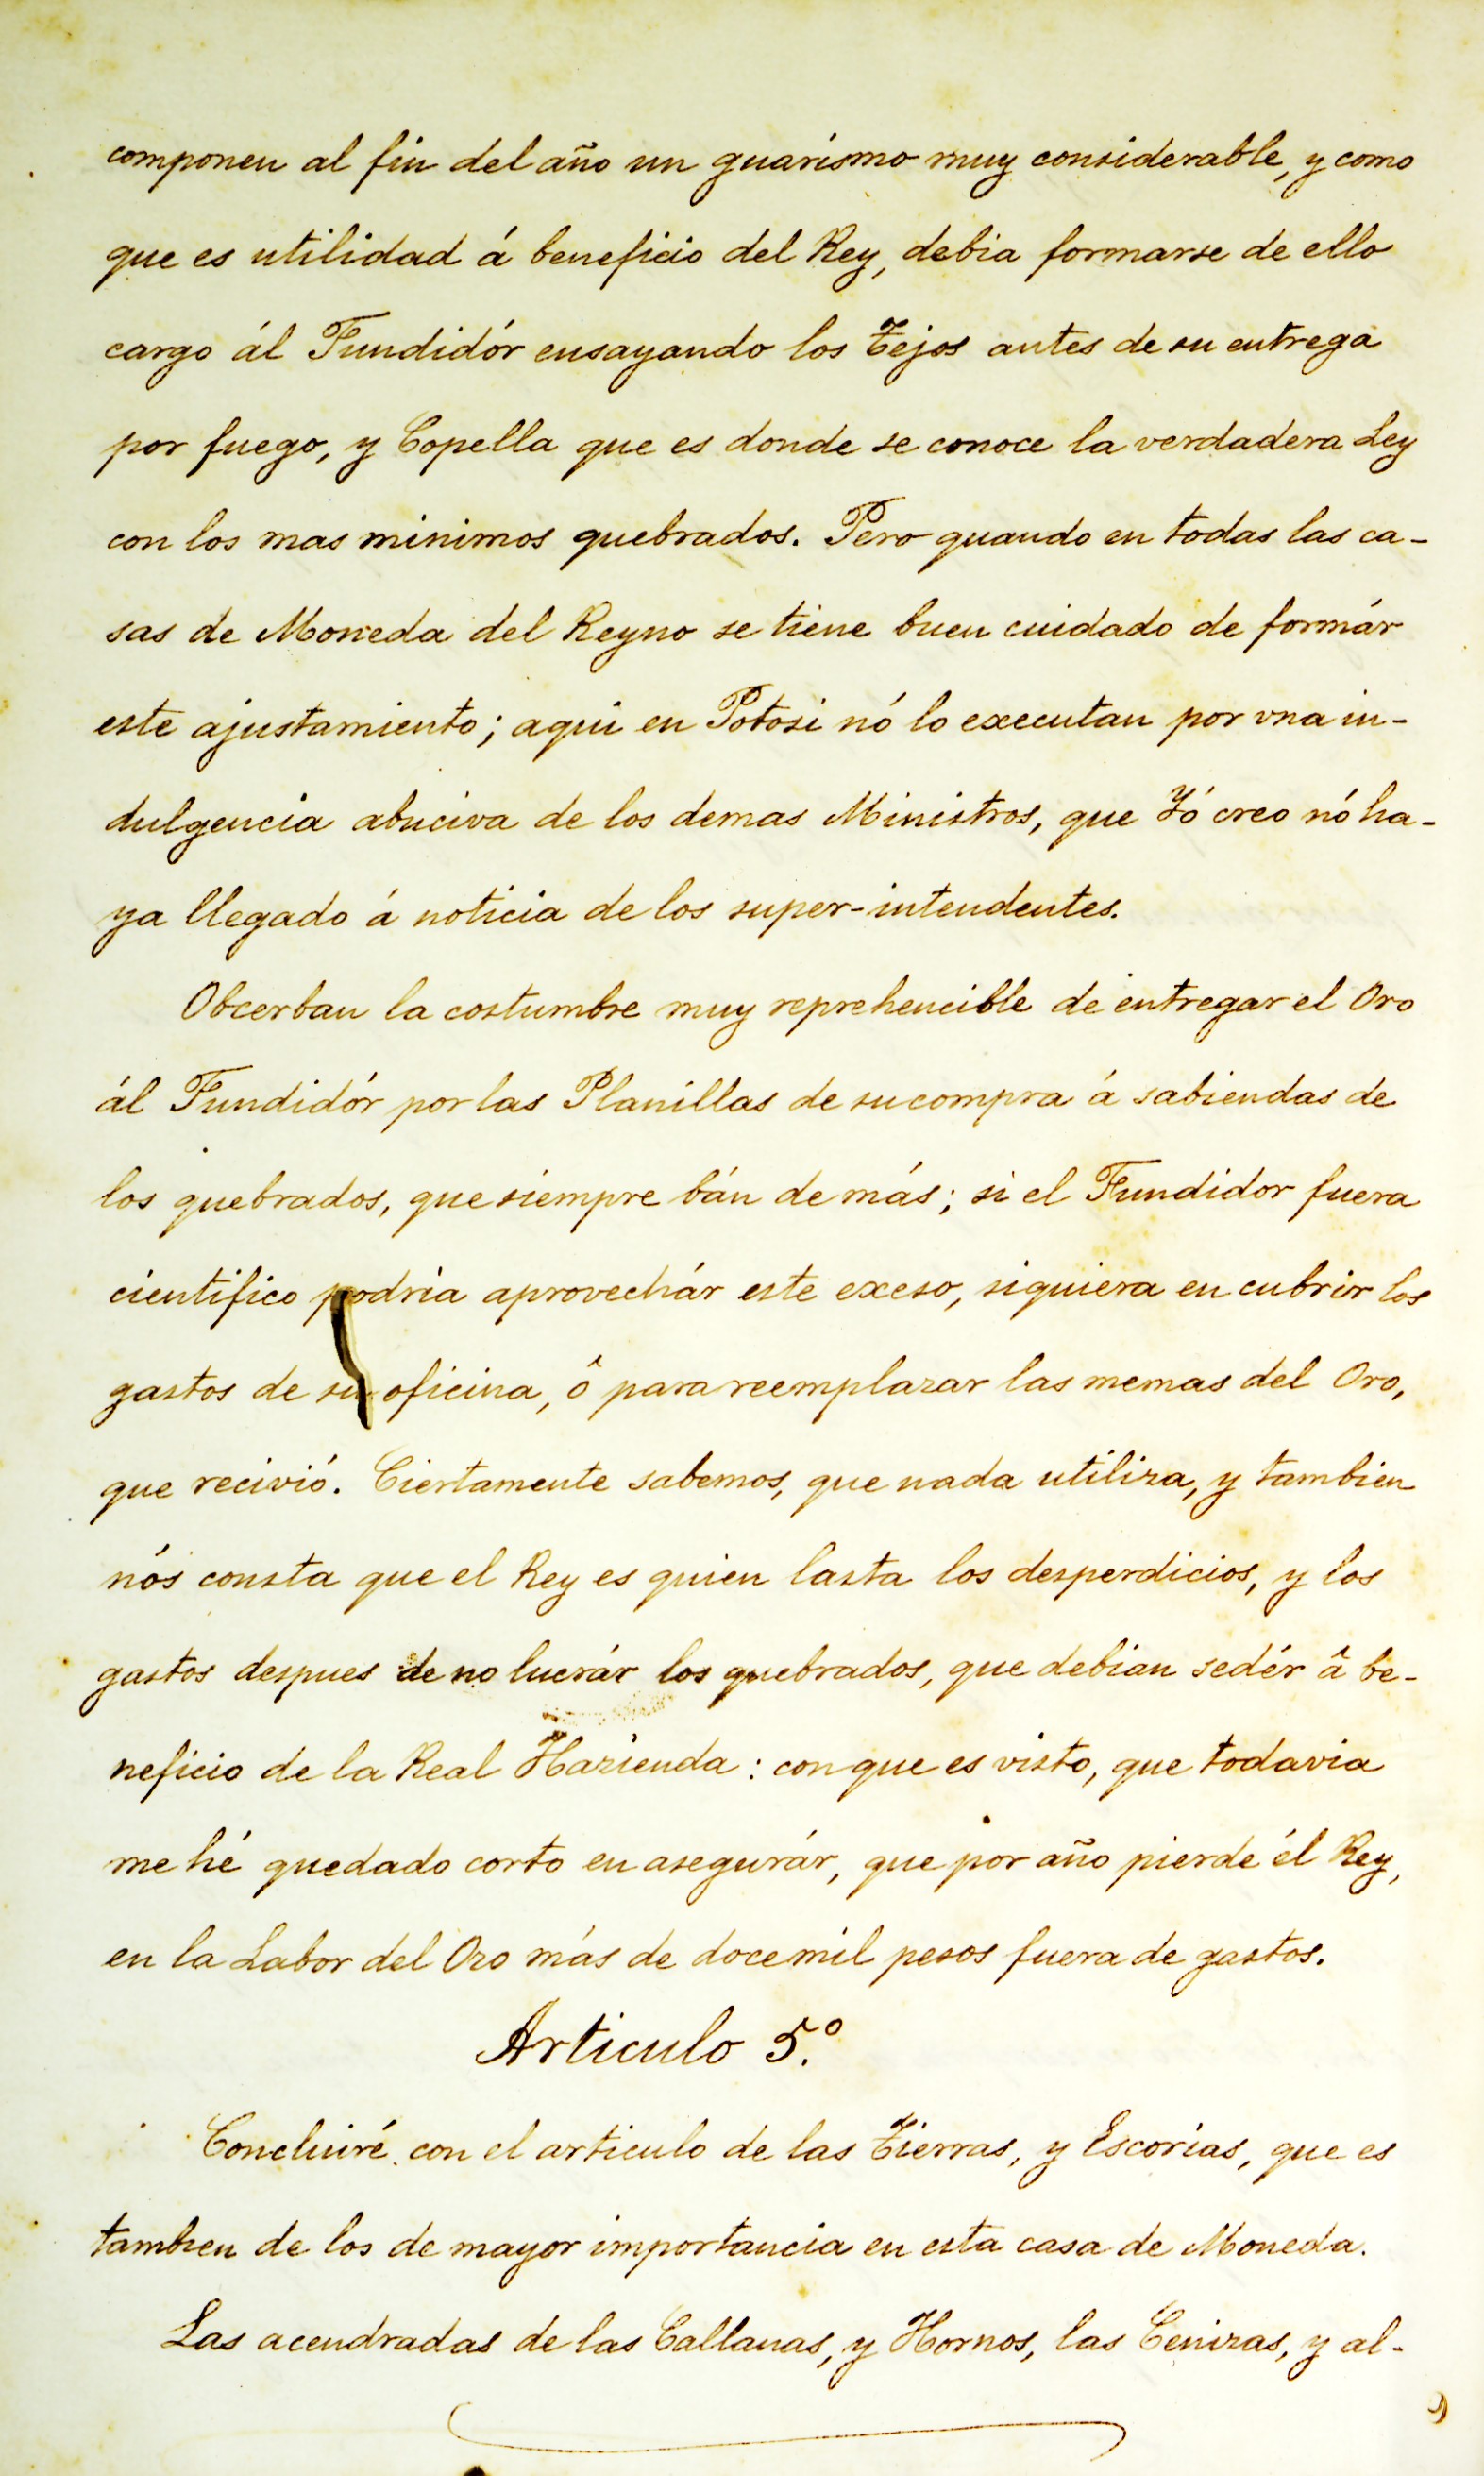 componen al fin del año un guarismo muy considerable, y como
que es utilidad á beneficio del Rey, debia formarse de ello
cargo ál Fundidór ensayando los Tejos antes de su entrega
por fuego, y Copella que es donde se conoce la verdadera Ley
con los mas minimos quebrados. Pero quando en todas las ca-
sas de Moneda del Reyno se tiene buen cuidado de formár
este ajustamiento; aqui en Potosi nó lo executan por vna in-
dulgencia abuciva de los demas Ministros, que Yó creo nó ha-
ya llegado á noticia de los super-intendentes.
Obcerban la costumbre muy reprehencible de entregar el Oro
ál Fundidór por las Planillas de su compra á sabiendas de
los quebrados, que siempre bán de más; si el Fundidor fuera
cientifico podria aprovechár este exeso, siquiera en cubrir los
gastos de su oficina, ô para reemplazar las memas del Oro,
que recivió. Ciertamente sabemos, que nada utiliza, y tambien
nós consta que el Rey es quien lasta los desperdicios, y los
gastos despues de no lucrár los quebrados, que debian sedér â be-
neficio de la Real Hazienda: con que es visto, que todavia
me hé quedado corto en asegurár, que por año pierde él Rey,
en la Labor del Oro más de doce mil pesos fuera de gastos.
Articulo 5.º
Concluiré con el articulo de las Tierras, y Escorias, que es
tambien de los de mayor importancia en esta casa de Moneda.
Las acendradas de las Callanas, y Hornos, las Cenizas, y al-